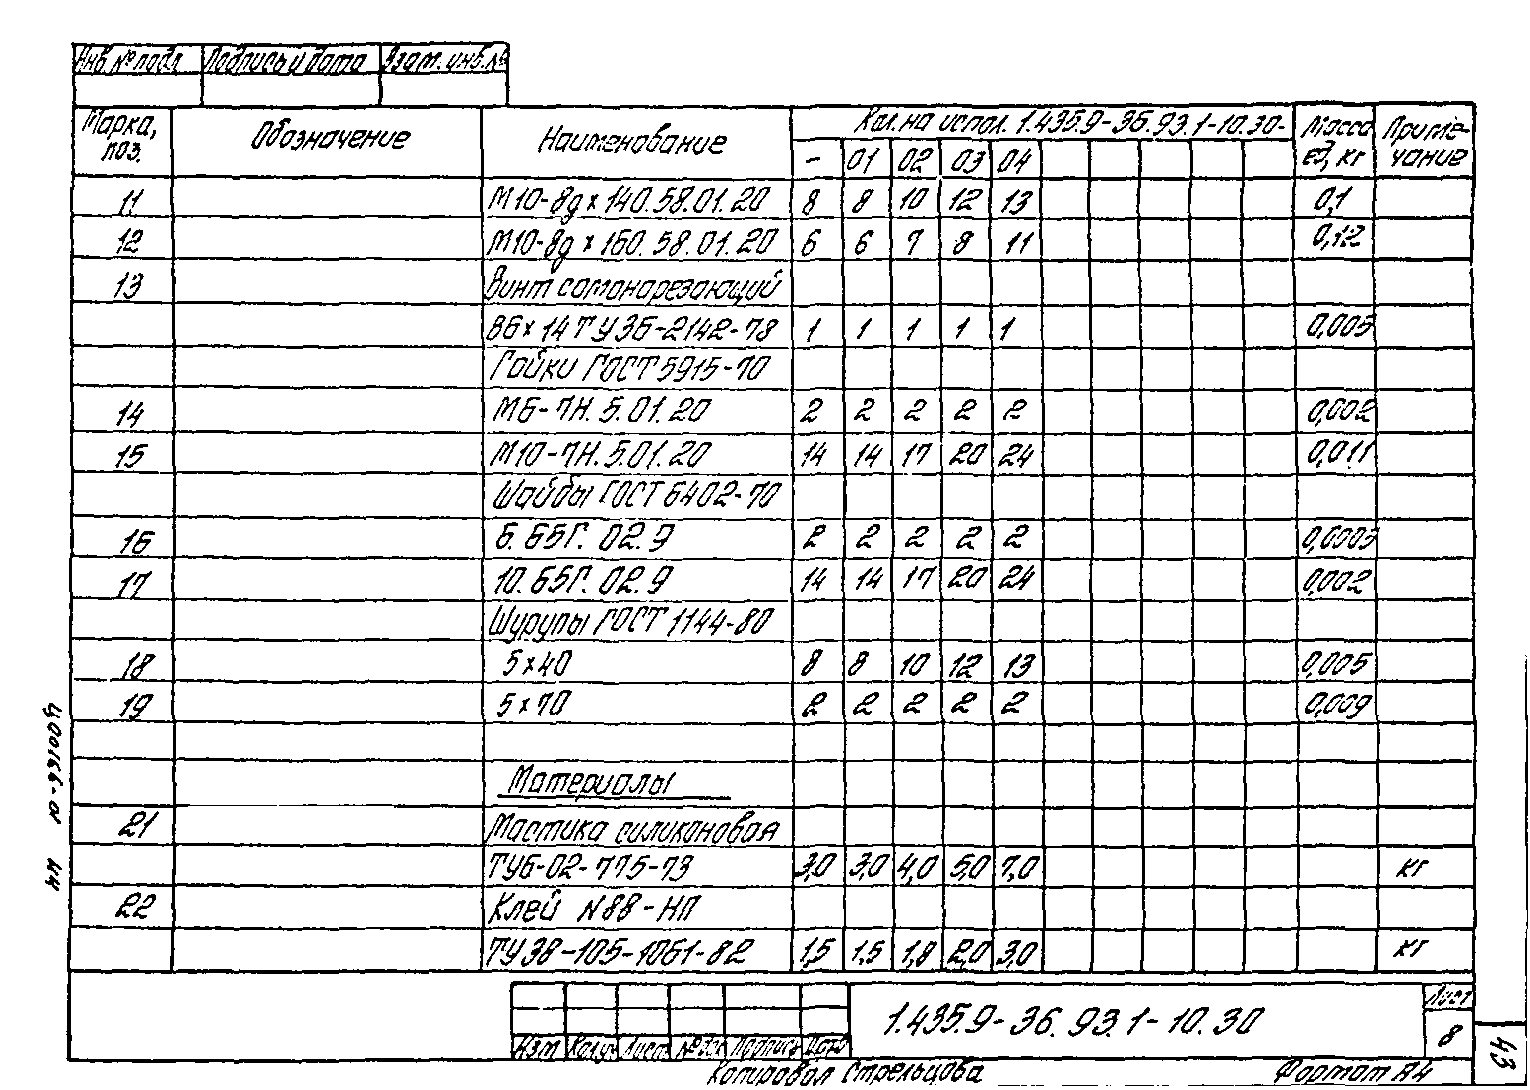 Инв. № подл. Подпись и дата Взам. инв. №
Марка, поз. Обозначение Наименование Кол. на испол. 1.435.9-36.93.1-10.30- Масса ед, кг Приме-чание
- 01 02 03 04
11 М10-8g×140.58.01.20 8 8 10 12 13 0,1
12 М10-8g×160.58.01.20 6 6 7 8 11 0,12
13 Винт самонарезающий
В6×14 ТУ36-2142-78 1 1 1 1 1 0,003
Гайки ГОСТ 5915-70
14 М6-7Н.5.01.20 2 2 2 2 2 0,002
15 М10-7Н.5.01.20 14 14 17 20 24 0,011
Шайбы ГОСТ 6402-70
16 6.65Г.02.9 2 2 2 2 2 0,0003
17 10.65Г.02.9 14 14 17 20 24 0,002
Шурупы ГОСТ 1144-80
18 5×40 8 8 10 12 13 0,005
19 5×70 2 2 2 2 2 0,009
Материалы
21 Мастика силиконовая
ТУ6-02-775-73 3,0 3,0 4,0 5,0 7,0 кг
22 Клей N88-НП
ТУ38-105-1061-82 1,5 1,5 1,8 2,0 3,0 кг
Ц00166-01 44
1.435.9-36.93.1-10.30
Лист
8
Изм. Кол.уч. Лист №док. Подпись Дата
43
Копировал Стрельцова Формат А4